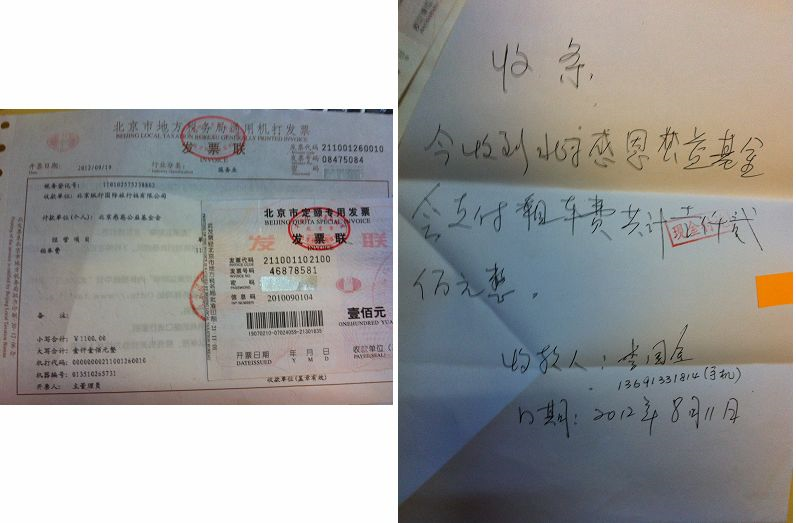 北京市地方税务局通用机打发票
BEIJING LOCAL TAXATION BUREAU GENERALLY PRINTED INVOICE
发票联
INVOICE
发票代码 211001260010
发票号码 08475084
开票日期: 2012/09/19 行业分类: 服务业
税务登记号: 110102575238862
付款单位(个人): 北京感恩公益基金会
经营项目
租车费
小写合计: ¥1100.00
大写合计: 壹仟壹佰元整
机打代码: 00000000211001260010
机器编号: 013510265731
开票人: 主管理员
备注:
收款单位(盖章有效)
北京市定额专用发票
BEIJING QUOTA SPECIAL INVOICE
发票联
INVOICE
发票代码 211001102100
发票号码 46878581
密码
信息码 2010090104
壹佰元
ONEHUNDRED YUA
15070210-07024059-21301835
开票日期 年 月 日 收款单位(
DATEISSUED Y M D PAYEE(SEAL)
收条
今收到北京感恩公益基金
会支付租车费共计壹仟贰
现金付讫
佰元整。
收款人: 李国金
13691331814(手机)
日期: 2012年8月11日